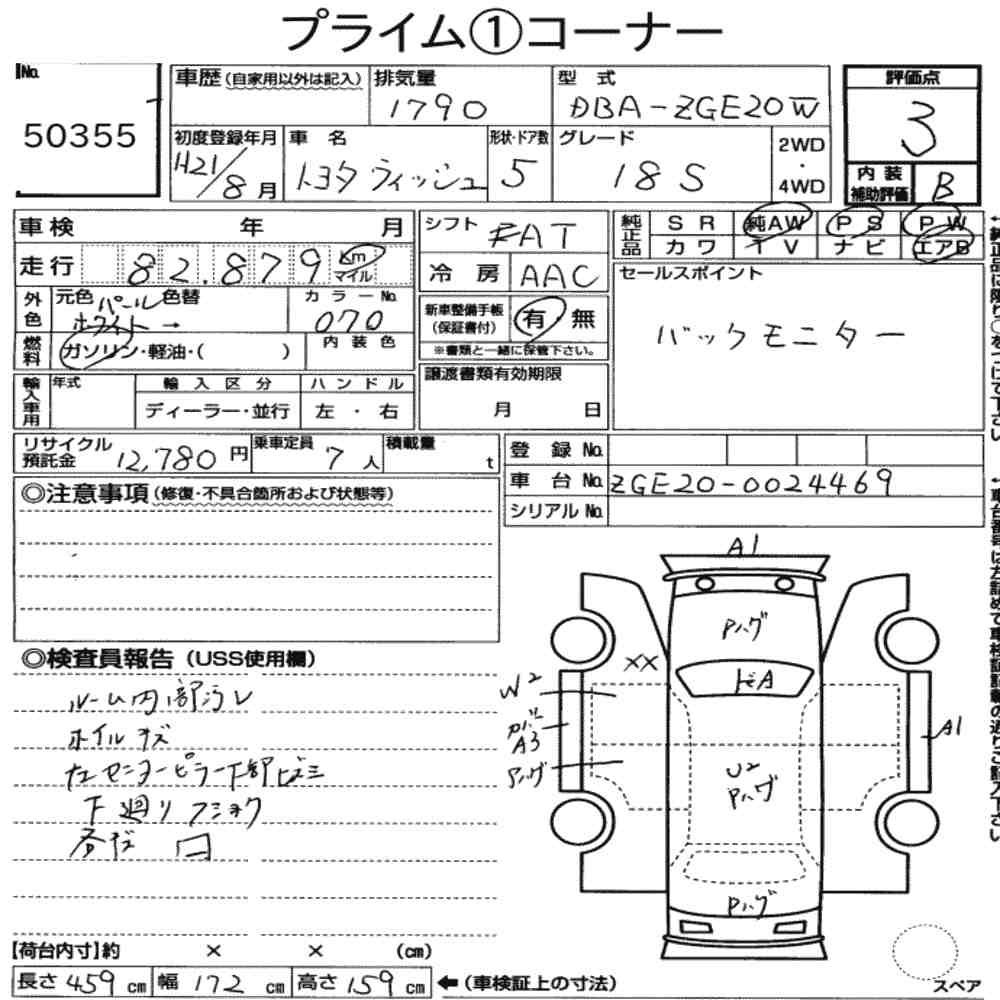 プライム①コーナー
No. 50355
車歴(自家用以外は記入) 排気量 1790 型式 DBA-ZGE20W
評価点 3
初度登録年月 H21/8月 車名 トヨタ ウィッシュ 形状・ドア数 5 グレード 18S 2WD・4WD
内装補助評価 B
車検 年 月
シフト FAT
純正品 SR 純AW PS PW
カワ TV ナビ エアB
走行 82.879 Km マイル
冷房 AAC
セールスポイント
バックモニター
外色 元色 パールホワイト → 色替 カラーNo. 070
新車整備手帳(保証書付) 有 無
※書類と一緒に保管下さい。
燃料 ガソリン・軽油・( ) 内装色
輸入車用 年式 輸入区分 ハンドル
ディーラー・並行 左・右
譲渡書類有効期限
月 日
リサイクル預託金 12,780円 乗車定員 7人 積載量 t
登録No.
車台No. ZGE20-0024469
シリアルNo.
◎注意事項(修復・不具合箇所および状態等)
◎検査員報告(USS使用欄)
ルーム内部汚レ
ホイルキズ
左センターピラー下部
下廻りフショク
A1
Pハゲ
XX
ドA
W2
A3
Pハゲ
U2
Pハゲ
A1
Pハゲ
【荷台内寸】約 × × (cm)
長さ 459 cm 幅 172 cm 高さ 159 cm ←(車検証上の寸法)
スペア